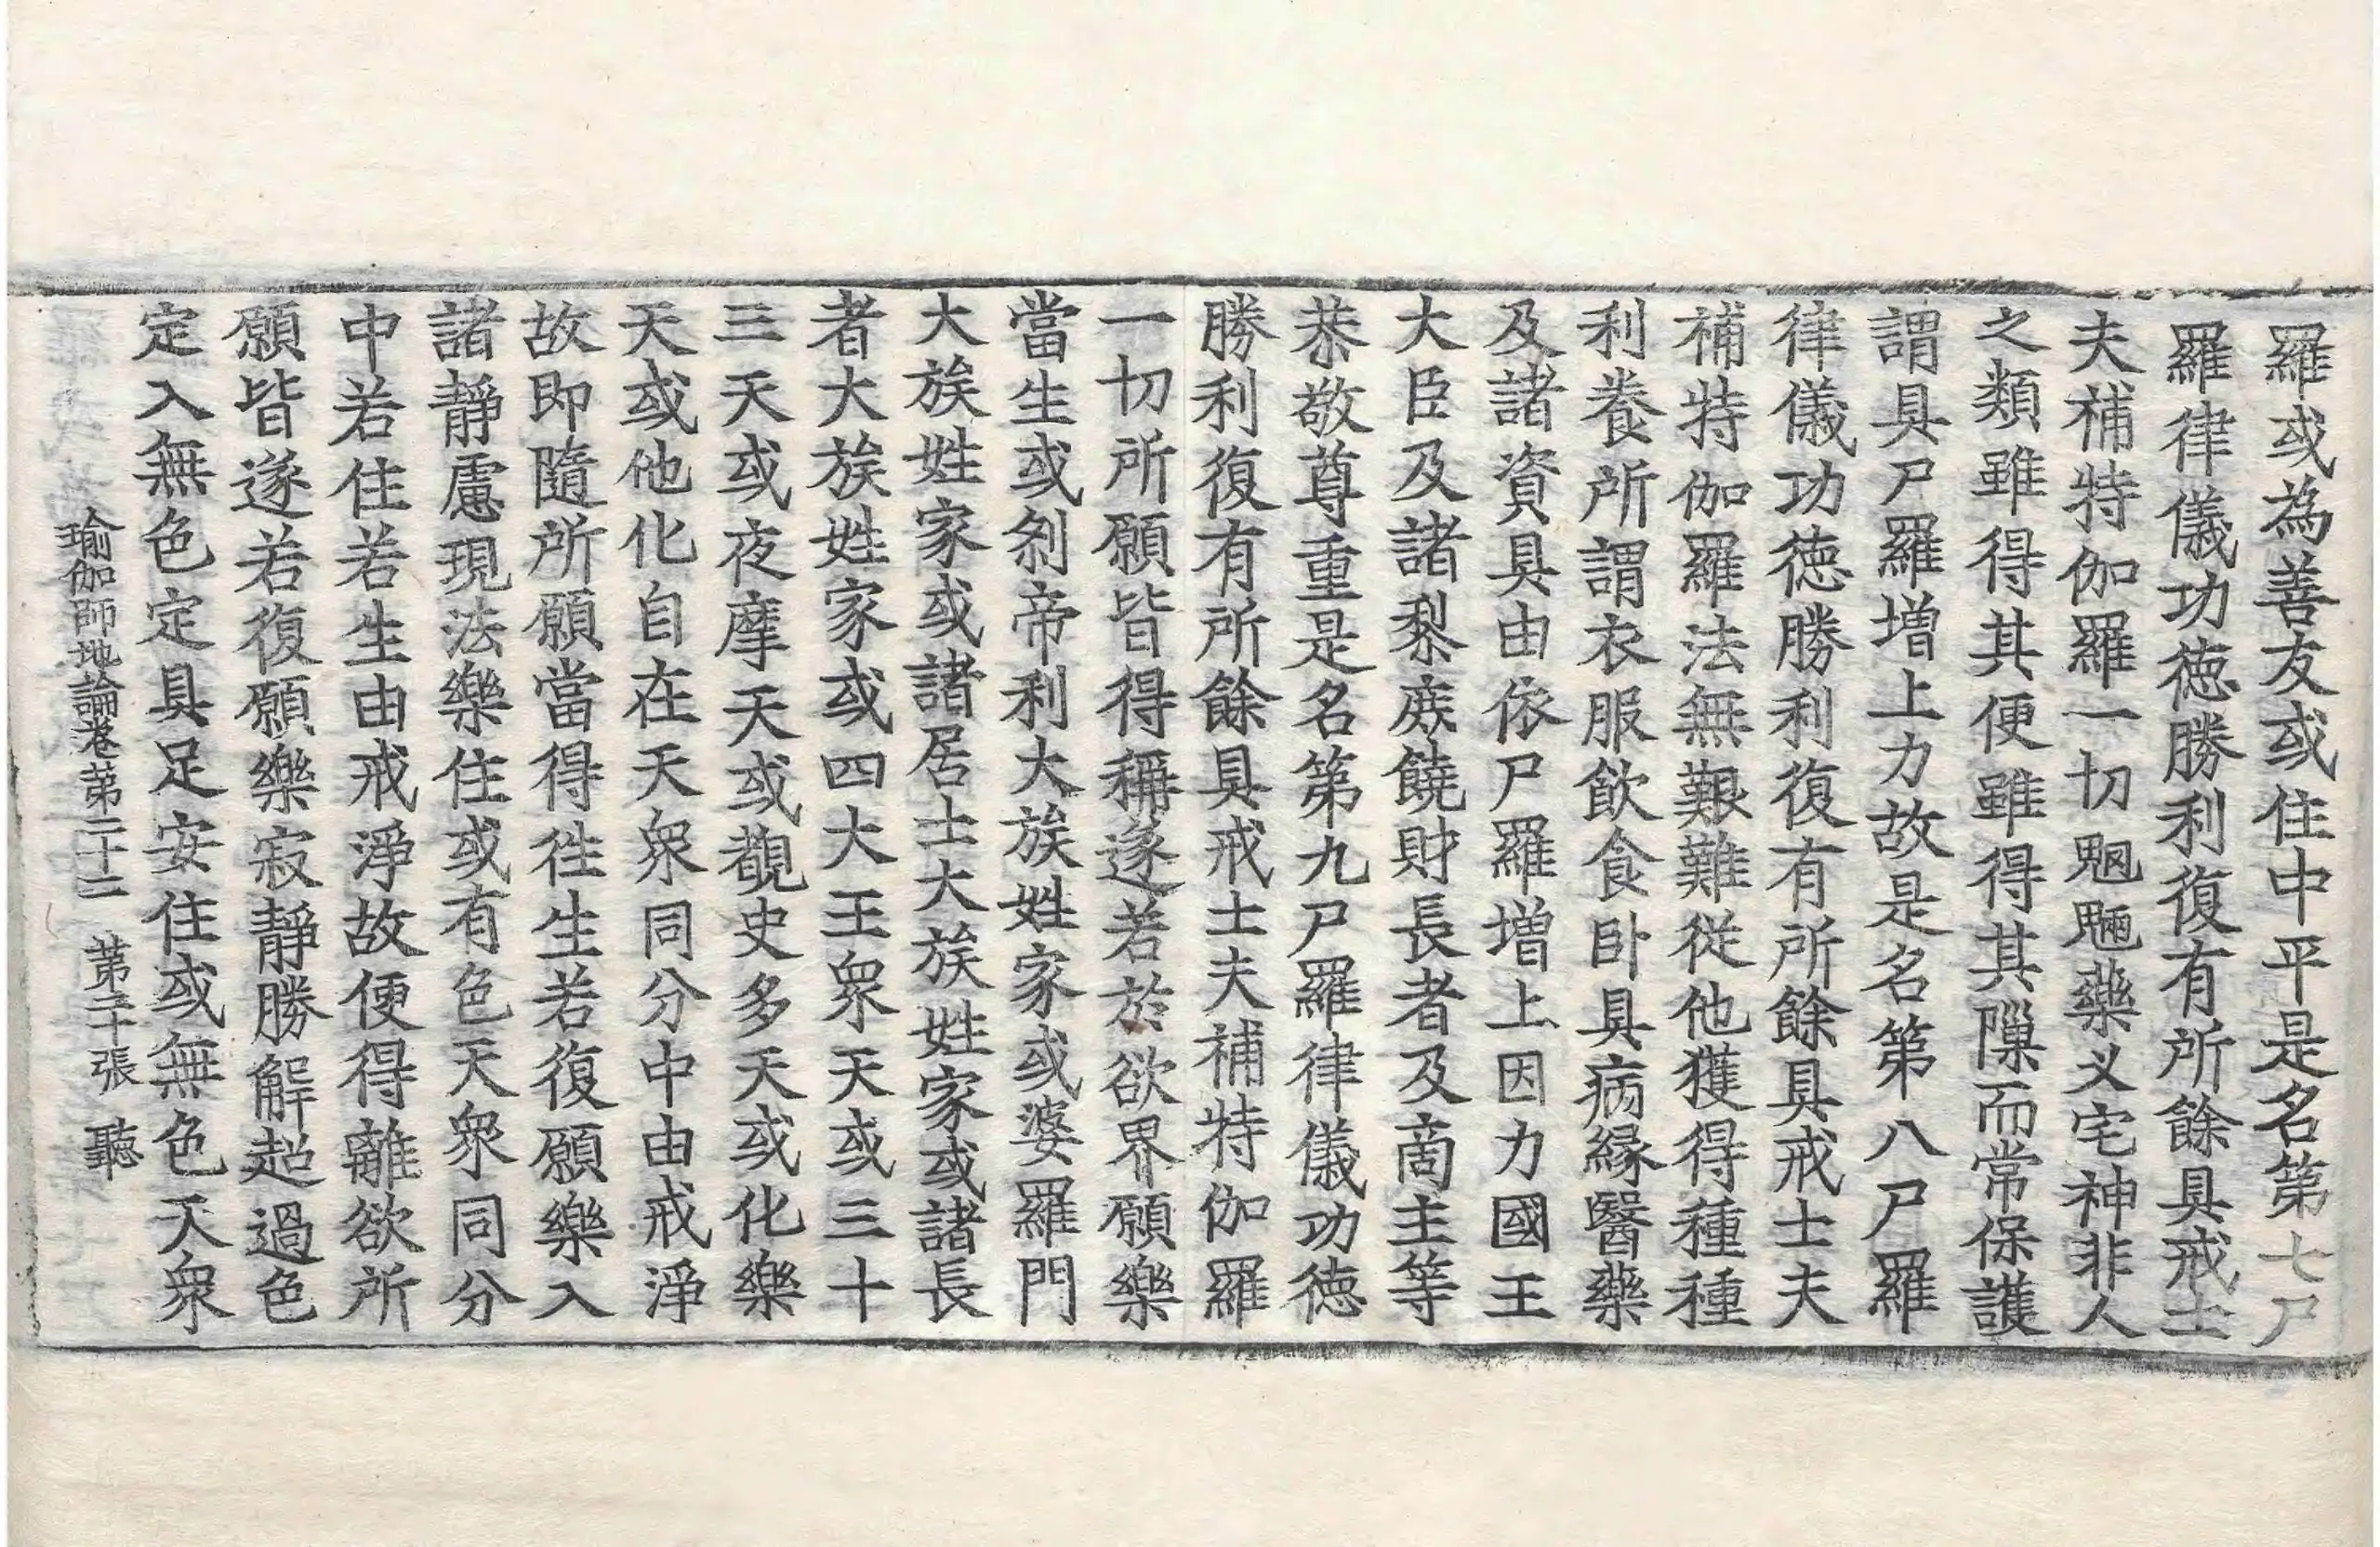 羅或為善友或住中平是名第七尸
羅律儀功徳勝利復有所餘具戒士
夫補特伽羅一切魍魎藥义宅神非人
之類雖得其便雖得其隟而常保護
謂具尸羅増上力故是名第八尸羅
律儀功徳勝利復有所餘具戒士夫
補特伽羅法無艱難從他獲得種種
利養所謂衣服飲食卧具病縁醫藥
及諸資具由依尸羅増上因力國王
大臣及諸黎庶饒財長者及啇主等
恭敬尊重是名第九尸羅律儀功徳
勝利復有所餘具戒士夫補特伽羅
一切所願皆得稱遂若於欲界願樂
當生或刹帝利大族姓家或婆羅門
大族姓家或諸居士大族姓家或諸長
者大族姓家或四大王衆天或三十
三天或夜摩天或覩史多天或化樂
天或他化自在天衆同分中由戒淨
故即隨所願當得徃生若復願樂入
諸靜慮現法樂住或有色天衆同分
中若住若生由戒淨故便得離欲所
願皆遂若復願樂寂靜勝解超過色
定入無色定具足安住或無色天衆
瑜伽師地論卷第二十二　第二十張　聽